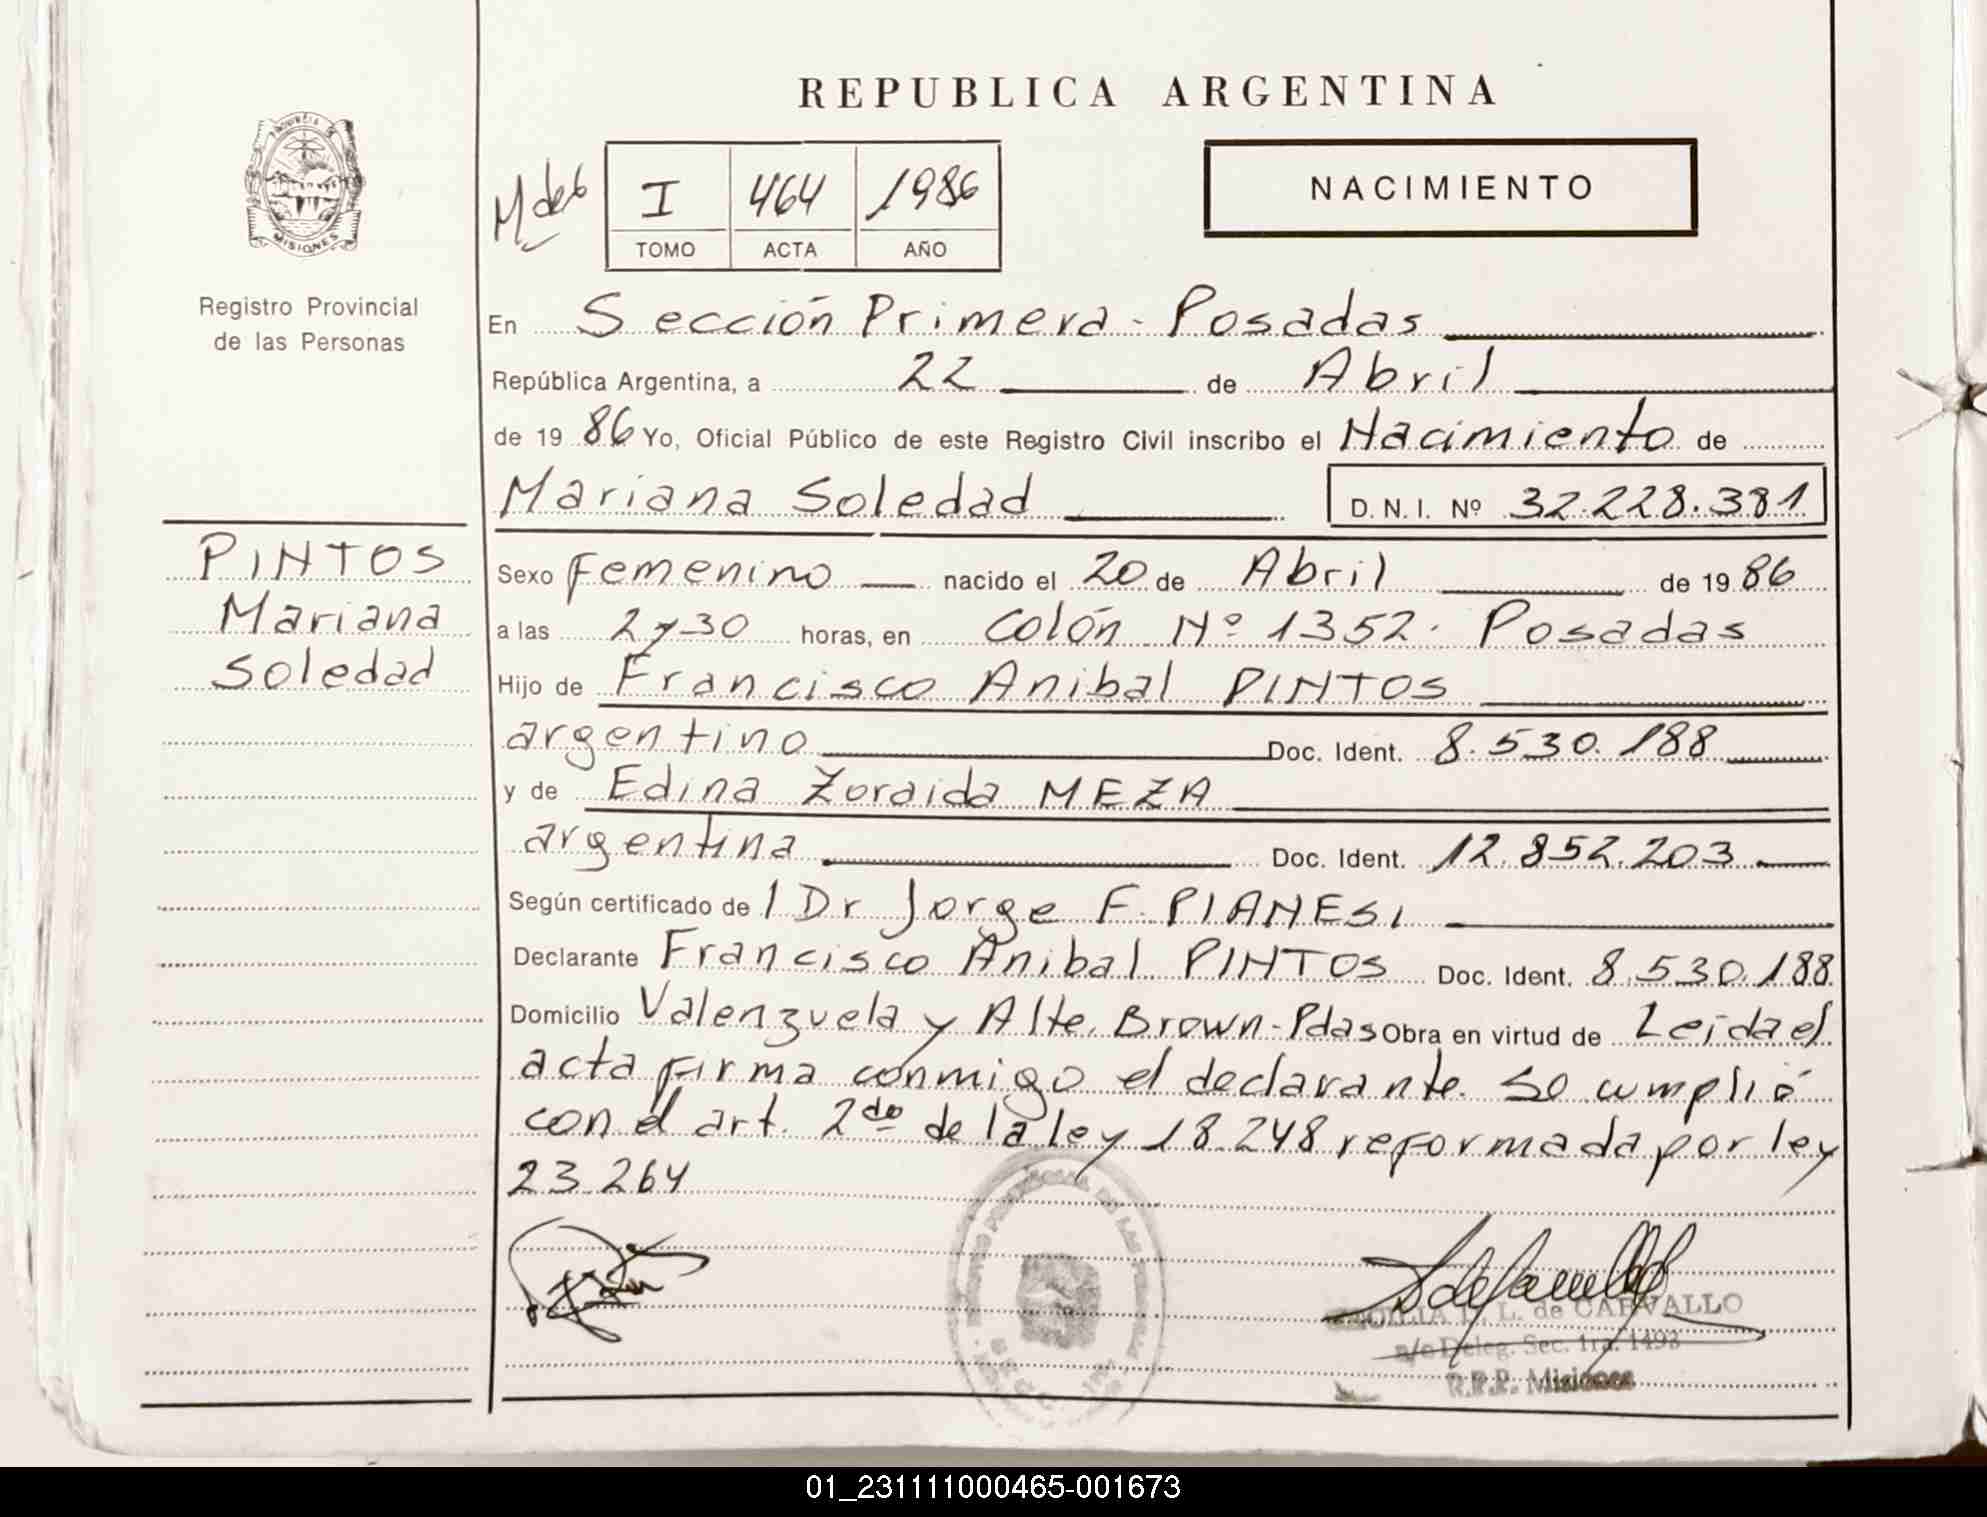 REPUBLICA ARGENTINA
NACIMIENTO
I 464 1986
TOMO ACTA AÑO
PROVINCIA DE
MISIONES
Registro Provincial
de las Personas
En Sección Primera - Posadas
República Argentina, a 22 de Abril
de 19 86 Yo, Oficial Público de este Registro Civil inscribo el Nacimiento de
Mariana Soledad D.N.I. Nº 32.228.381
PINTOS
Mariana
Soledad
Sexo Femenino nacido el 20 de Abril de 19 86
a las 2 y 30 horas, en Colón Nº 1352. Posadas
Hijo de Francisco Anibal PINTOS
argentino Doc. Ident. 8.530.188
y de Edina Zoraida MEZA
argentina Doc. Ident. 12.852.203
Según certificado de l Dr Jorge F. PIANESI
Declarante Francisco Anibal PINTOS Doc. Ident. 8.530.188
Domicilio Valenzuela y Alte. Brown-Pdas Obra en virtud de Leida el
acta firma conmigo el declarante. Se cumplió
con el art. 2do de la ley 18.248 reformada por ley
23.264
L. de CARVALLO
a/c Deleg. Sec. 1ra. 1493
R.P.P. Misiones
01_231111000465-001673